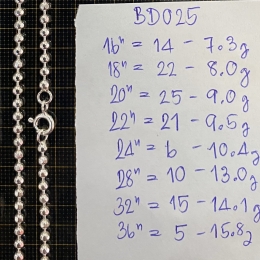 BD025
16" = 14 - 7.3g
18" = 22 - 8.0g
20" = 25 - 9.0g
22" = 21 - 9.5g
24" = 6 - 10.4g
28" = 10 - 13.0g
32" = 15 - 14.1g
36" = 5 - 15.8g